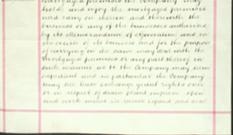 mortgaged premises the Company may
hold and enjoy the mortgaged premises
and carry on therein and therewith the
business or any of the businesses authorised
by its Memorandum of Association and in
the course of its business and for the purpose
of carrying on the same may deal with the
mortgaged premises or any part thereof in
such manner as to the Company may seem
expedient and in particular the Company
may
over
or in respect of
and